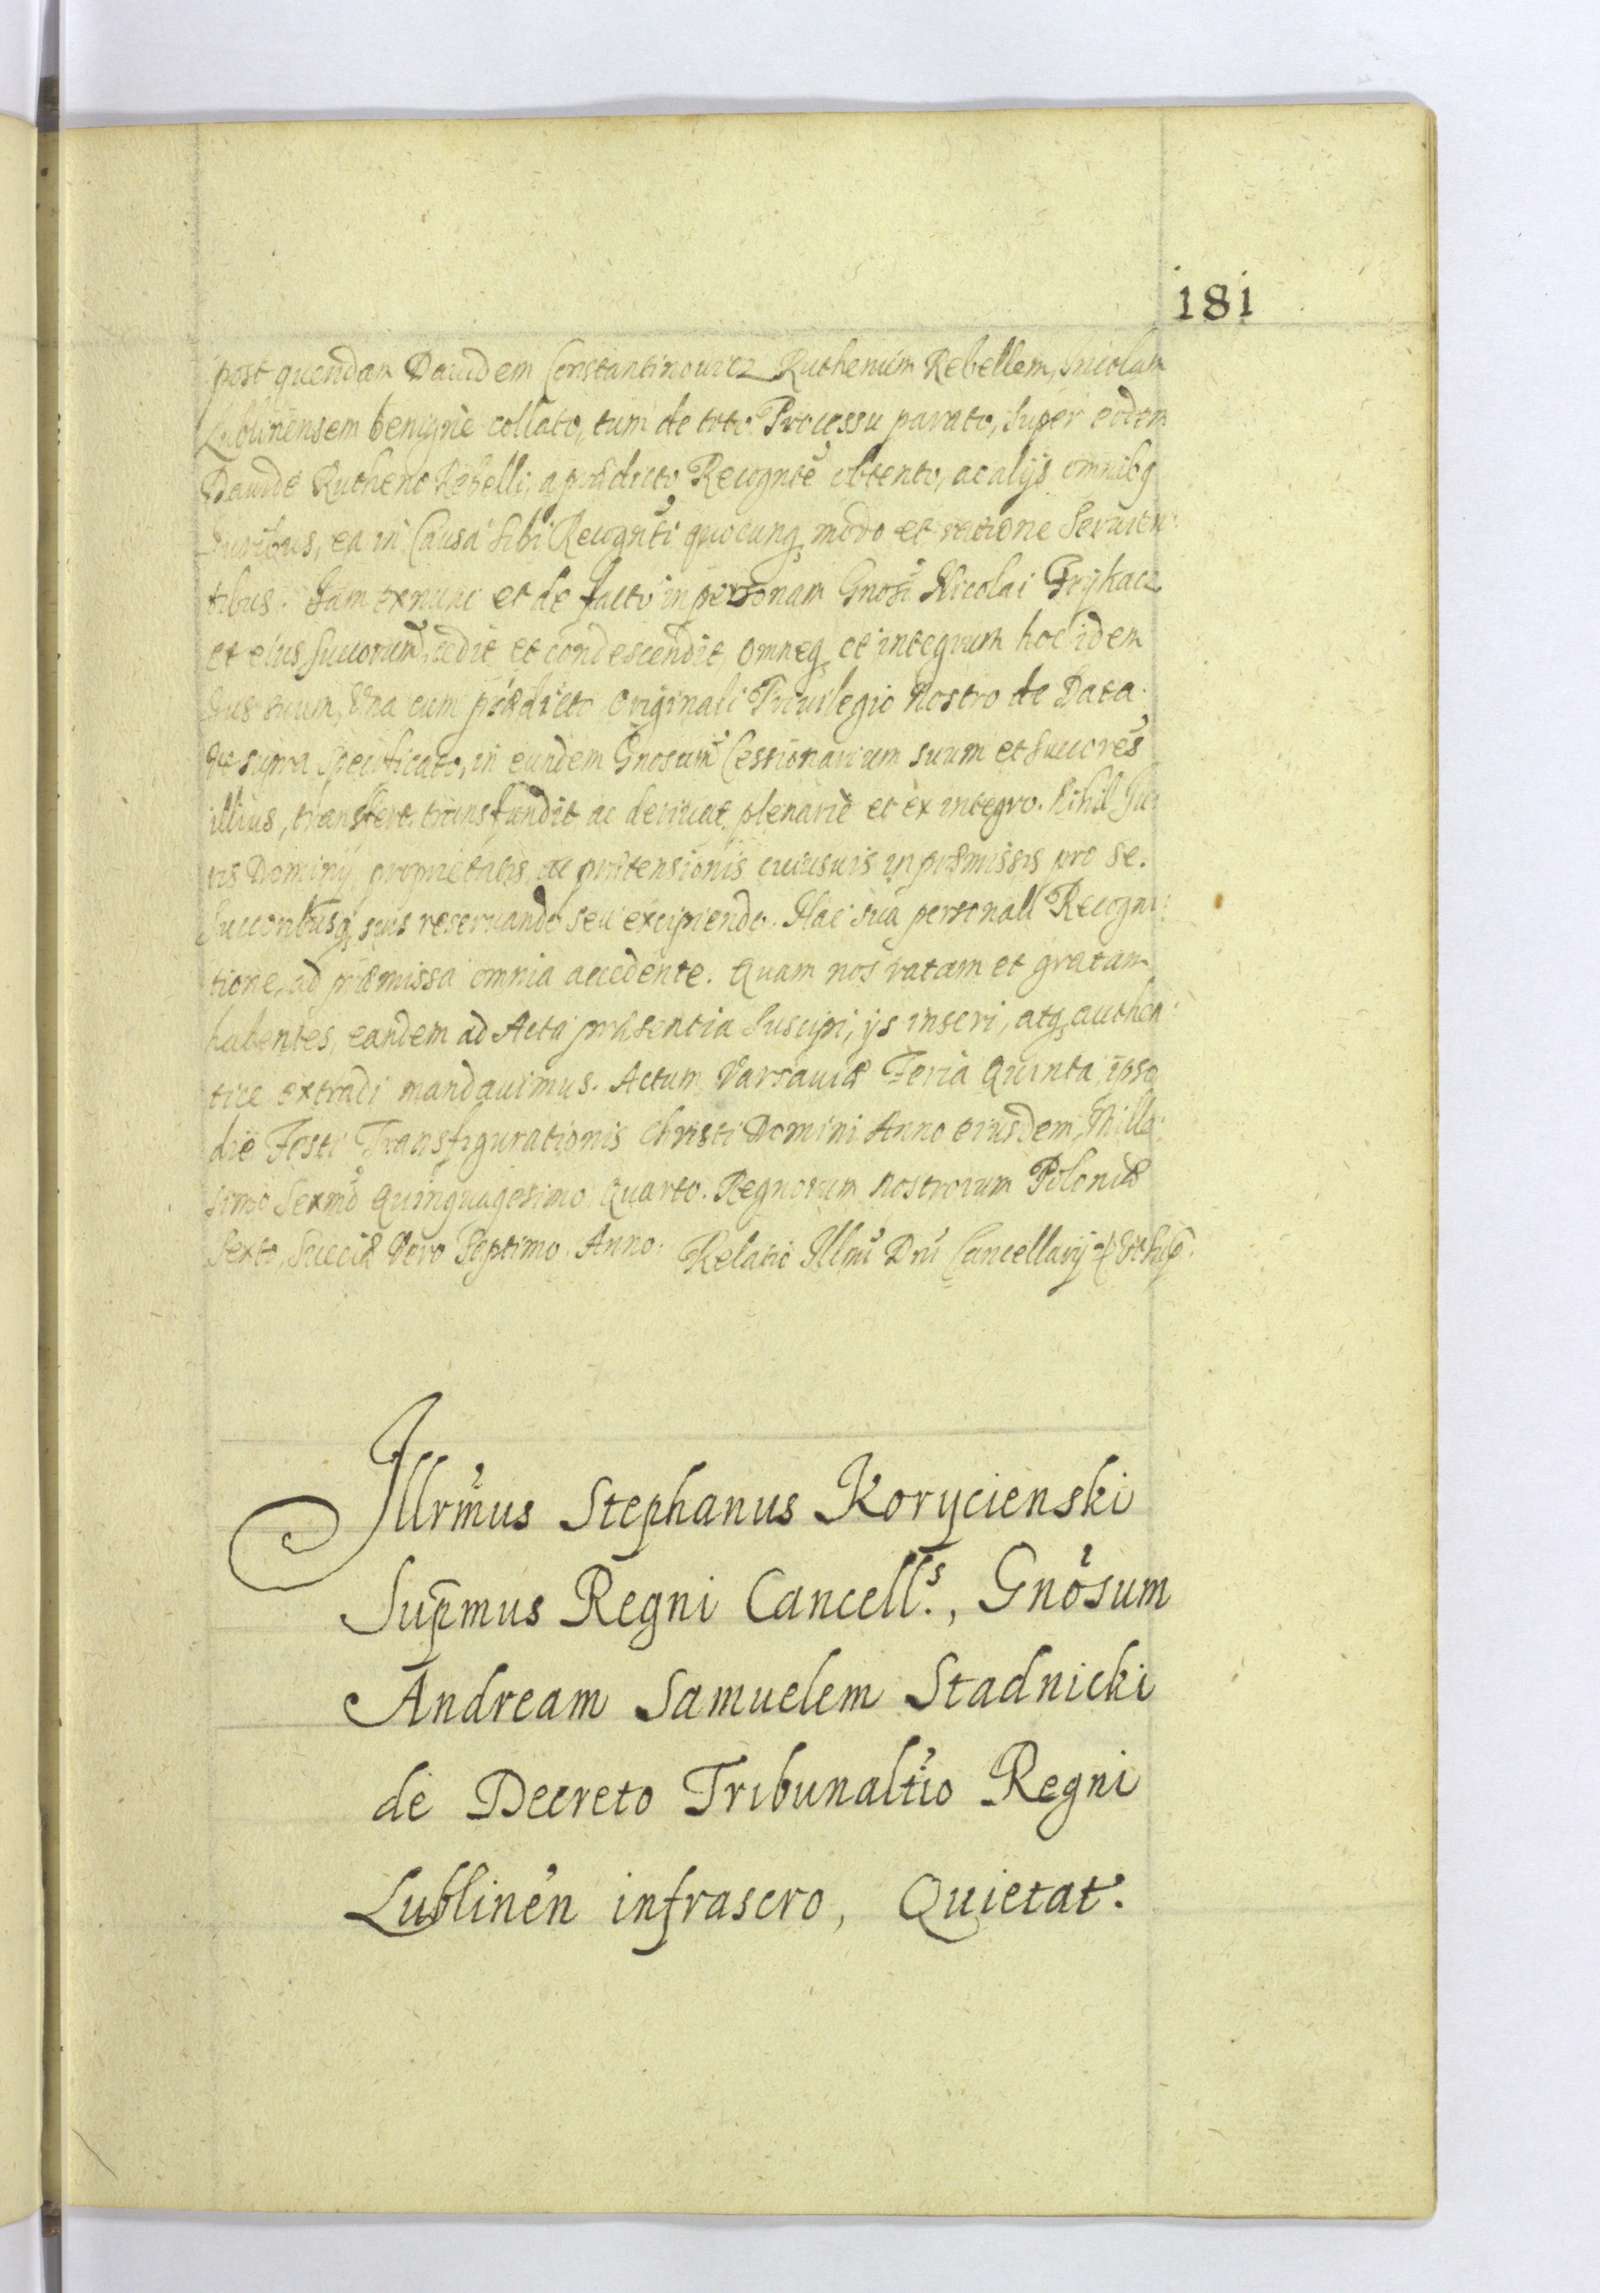 181
post quendam Dauidem Constantinowicz Ruthenum Rebellem, incolam
Lublinensem benigne collato, tum de toto Processu parato, super eodem
Dauide Rutheno Rebelli, a prædicto Recognte obtento, ac alijs omnibq
Iuribus, ea in Causa sibi Recognti quocunq modo et ratione seruien
tibus. Iam exnunc et de facto in personam Gnosi Nicolai Grykacz
et eius Succorum, cedit et condescendit, omneq et integrum hoc idem
Ius suum, Vna cum prædicto Originali Priuilegio Nostro de Data
Vt supra specificato, in eundem Gnosum Cessionarium suum et succores
illius, transfert transfundit ac deriuat plenarie et ex integro. Nihil Iu
ris Dominij, proprietatis, ac prætensionis cuiusuis in præmissis pro se.
Succoribusq suis reseruando seu excipiendo. Hac sua personali Recogni:
tione, ad præmissa omnia accedente. Quam nos ratam et gratam
habentes, eandem ad Acta præsentia suscipi, ijs inseri, atq authen
tice extradi mandauimus. Actum Varsauiæ Feria Quinta ipso
die Festi Transfigurationis Christi Domini Anno eiusdem, Mille
simo Sexmo Quinquagesimo Quarto. Regnorum Nostrorum Poloniæ
Sexto, Sueciæ Vero Septimo. Anno. Relatio Illmi Dni Cancellarij
Illrmus Stephanus Korycienski
Supmus Regni Cancell.s, Gnosum
Andream Samuelem Stadnicki
de Decreto Tribunaltio Regni
Lublinen infrascro, Quietat.